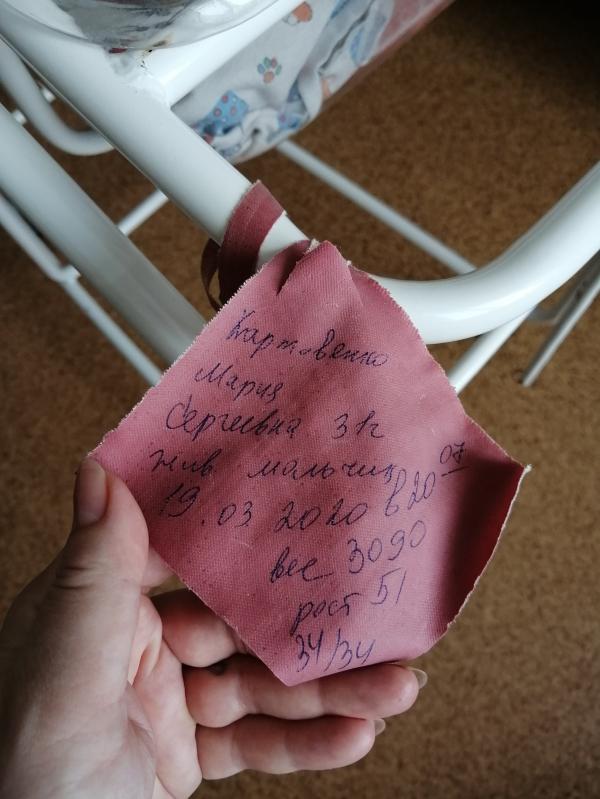 Картовенко
Мария
Сергеевна 3к
жив мальчик
19.03 2020 в 20 07
вес 3090
рост 51
34/34